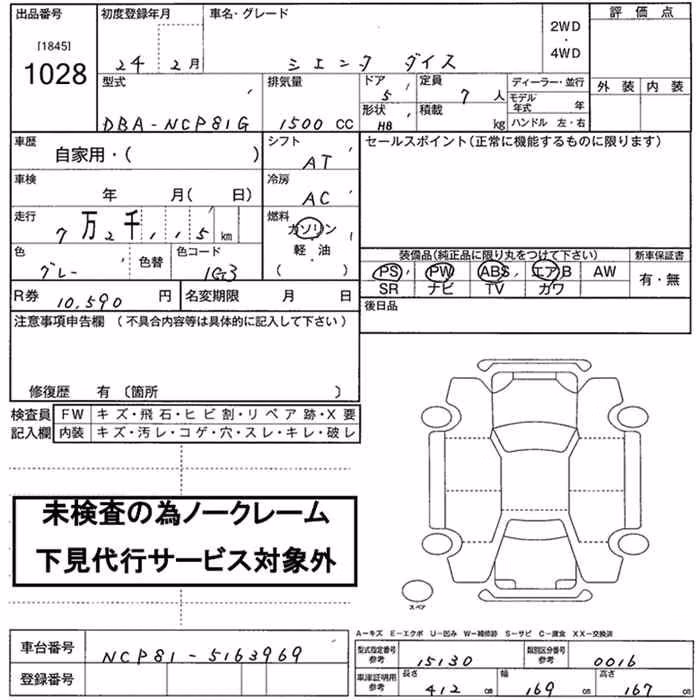 出品番号 初度登録年月 車名・グレード 評価点
[1845]
1028
24 2月 シエンタ ダイス 2WD・4WD
型式 排気量 ドア 定員 ディーラー・並行 外装 内装
DBA-NCP81G 1500 CC 5 7人 モデル年式 年
形状 HB 積載 kg ハンドル 左・右
車歴 シフト セールスポイント(正常に機能するものに限ります)
自家用・( ) AT
車検 冷房
年 月( 日) AC
走行 燃料
7万2千115 km ガソリン・軽油
色 色替 色コード ( )
グレー 1G3
装備品(純正品に限り丸をつけて下さい) 新車保証書
PS PW ABS エアB AW 有・無
SR ナビ TV カワ
R券 10,590 円 名変期限 月 日 後日品
注意事項申告欄 (不具合内容等は具体的に記入して下さい)
修復歴 有 (箇所 )
検査員 FW キズ・飛石・ヒビ割・リペア跡・X要
記入欄 内装 キズ・汚レ・コゲ・穴・スレ・キレ・破レ
未検査の為ノークレーム
下見代行サービス対象外
スペア
A-キズ E-エクボ U-凹み W-補修跡 S-サビ C-腐食 XX-交換済
車台番号 NCP81-5163969
登録番号
型式指定番号 参考 15130 類別区分番号 参考 0016
車庫証明用 参考 長さ 412 cm 幅 169 cm 高さ 167 cm